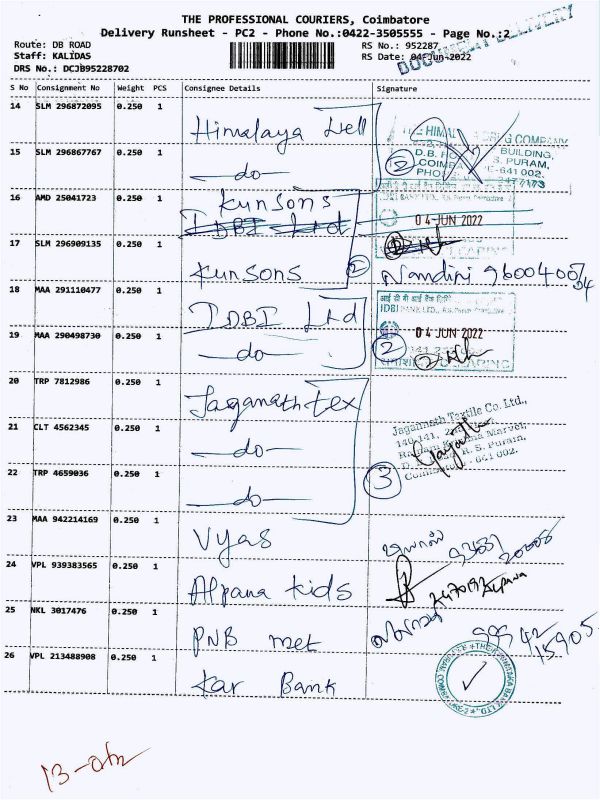 THE PROFESSIONAL COURIERS, Coimbatore
Delivery Runsheet - PC2 - Phone No.:0422-3505555 - Page No.:2
DOCUMENT DELIVERY
Route: DB ROAD
RS No.: 952287
Staff: KALIDAS
RS Date: 04-Jun-2022
DRS No.: DCJB95228702
S No Consignment No Weight PCS Consignee Details Signature
14 SLM 296872095 0.250 1 Himalaya Well
THE HIMALAYA DRUG COMPANY
BUILDING,
D.B. R.S. PURAM,
15 SLM 296867767 0.250 1 —do— 2
COIMBATORE-641 002.
16 AMD 25041723 0.250 1 Kunsons
IDBI Ltd
04 JUN 2022
17 SLM 296909135 0.250 1 Kunsons 2 Nandini
18 MAA 291110477 0.250 1 IDBI Ltd
आई डी बी आई बैंक लिमिटेड
IDBI BANK LTD., R.S. Puram
04 JUN 2022
19 MAA 290498730 0.250 1 —do— 2
CLEARING
20 TRP 7812986 0.250 1 Jaganath tex
Jagannath Textile Co. Ltd.,
21 CLT 4562345 0.250 1 —do—
140-141,
R. S. Puram,
Coimbatore - 641 002.
22 TRP 4659036 0.250 1 —do— 3
23 MAA 942214169 0.250 1 Vyas
24 VPL 939383565 0.250 1 Alpana kids
25 NKL 3017476 0.250 1 PNB met 99942 15905
26 VPL 213488908 0.250 1 Kar Bank